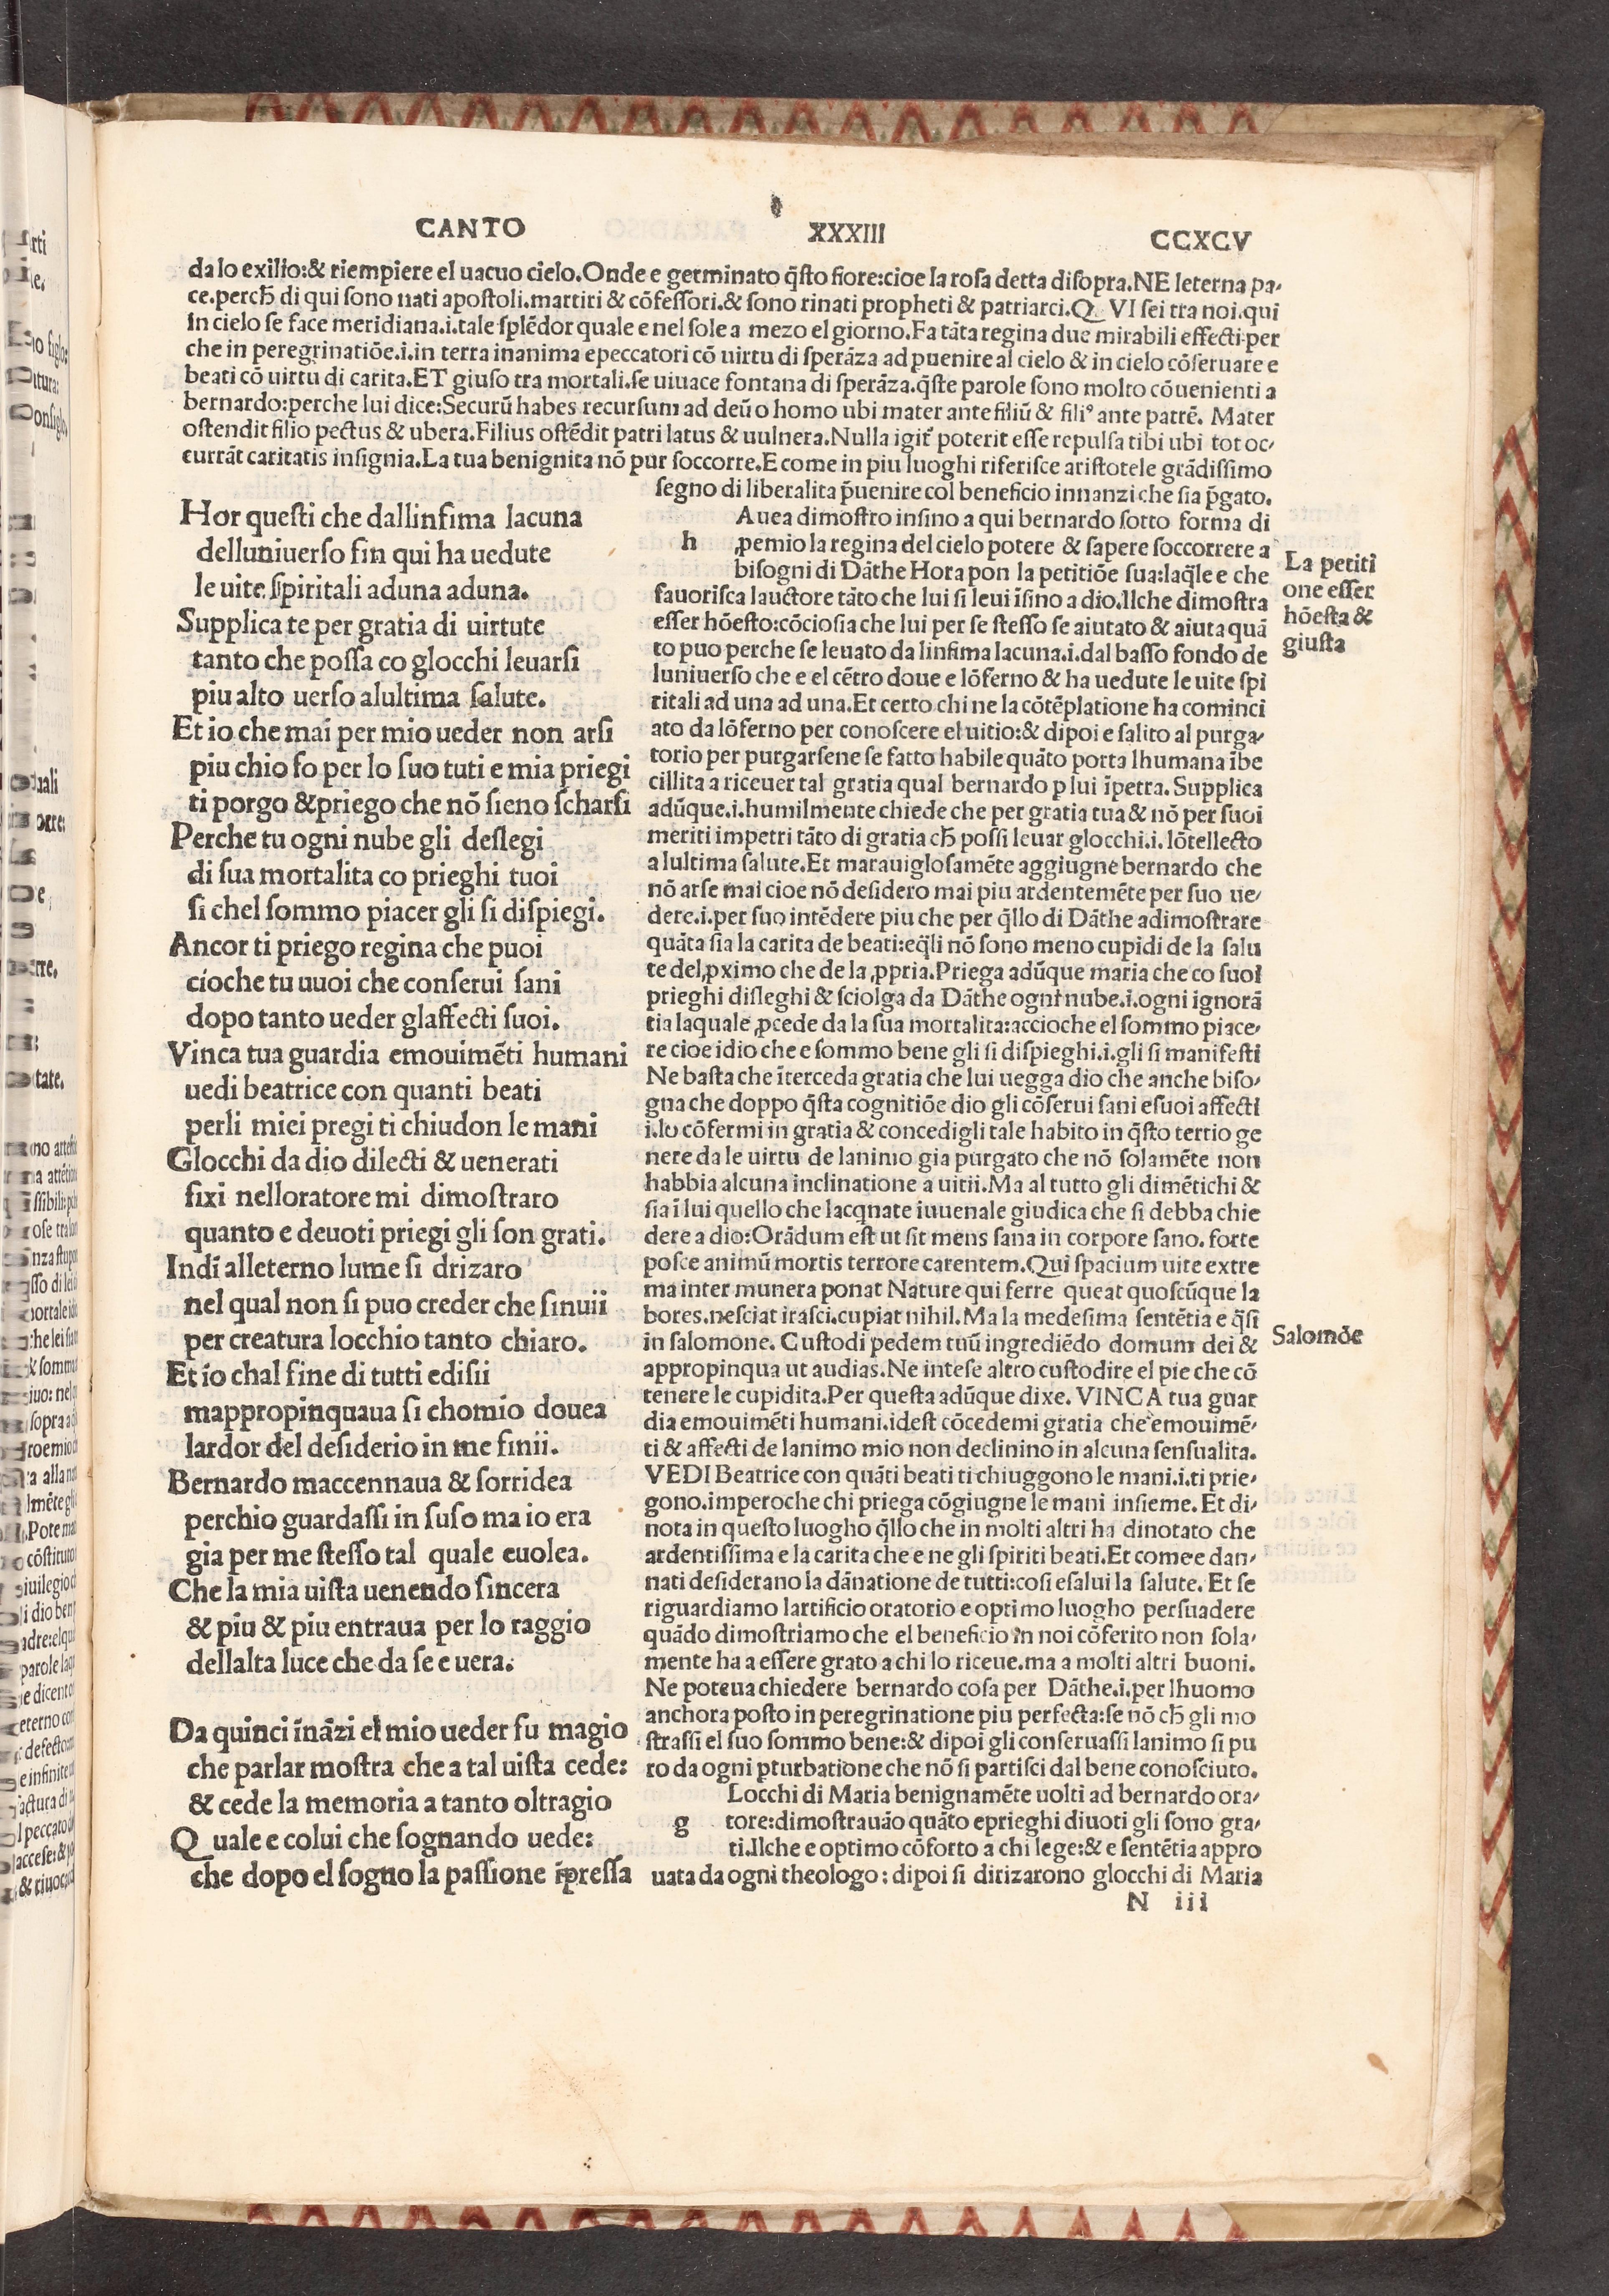 CANTO XXXIII CCXCV
da lo exilio:& riempiere el uacuo cielo.Onde e germinato q̄sto fiore:cioe la rosa detta disopra.NE leterna pa-
ce.perch̄ di qui sono nati apostoli.martiri & cōfessori.& sono rinati propheti & patriarci.Q VI sei tra noi.qui
in cielo se face meridiana.i.tale splēdor quale e nel sole a mezo el giorno.Fa tāta regina due mirabili effecti per
che in peregrinatiōe.i.in terra inanima epeccatori cō uirtu di sperāza ad puenire al cielo & in cielo cōseruare e
beati cō uirtu di carita.ET giuso tra mortali.se uiuace fontana di sperāza.q̄ste parole sono molto cōuenienti a
bernardo:perche lui dice:Securū habes recursum ad deū o homo ubi mater ante filiū & fili⁹ ante patrē. Mater
ostendit filio pectus & ubera.Filius ostēdit patri latus & uulnera.Nulla igit̄ poterit esse repulsa tibi ubi tot oc-
currāt caritatis insignia.La tua benignita nō pur soccorre.E come in piu luoghi riferisce aristotele grādissimo
segno di liberalita p̄uenire col beneficio innanzi che sia p̄gato.
Hor questi che dallinfima lacuna
delluniuerso fin qui ha uedute
le uite spiritali aduna aduna.
Supplica te per gratia di uirtute
tanto che possa co glocchi leuarsi
piu alto uerso alultima salute.
Et io che mai per mio ueder non arsi
piu chio fo per lo suo tuti e mia priegi
ti porgo &priego che nō sieno scharsi
Perche tu ogni nube gli deslegi
di sua mortalita co prieghi tuoi
si chel sommo piacer gli si dispiegi.
Ancor ti priego regina che puoi
cioche tu uuoi che conserui sani
dopo tanto ueder glaffecti suoi.
Vinca tua guardia emouimēti humani
uedi beatrice con quanti beati
perli miei pregi ti chiudon le mani
Glocchi da dio dilecti & uenerati
fixi nelloratore mi dimostraro
quanto e deuoti priegi gli son grati.
Indi alleterno lume si drizaro
nel qual non si puo creder che sinuii
per creatura locchio tanto chiaro.
Et io chal fine di tutti edisii
mappropinquaua si chomio douea
lardor del desiderio in me finii.
Bernardo maccennaua & sorridea
perchio guardassi in suso ma io era
gia per me stesso tal quale euolea.
Che la mia uista uenendo sincera
& piu & piu entraua per lo raggio
dellalta luce che da se e uera.
Da quinci ināzi el mio ueder fu magio
che parlar mostra che a tal uista cede:
& cede la memoria a tanto oltragio
Q uale e colui che sognando uede:
che dopo el sogno la passione īpressa
Auea dimostro insino a qui bernardo sotto forma di
h ꝓemio la regina del cielo potere & sapere soccorrere a
bisogni di Dāthe Hora pon la petitiōe sua:laq̄le e che
fauorisca lauctore tāto che lui si leui īsino a dio.Ilche dimostra
esser hōesto:cōciosia che lui per se stesso se aiutato & aiuta quā
to puo perche se leuato da linfima lacuna.i.dal basso fondo de
luniuerso che e el cētro doue e lōferno & ha uedute le uite spi
ritali ad una ad una.Et certo chi ne la cōtēplatione ha cominci
ato da lōferno per conoscere el uitio:& dipoi e salito al purga-
torio per purgarsene se fatto habile quāto porta lhumana ībe
cillita a riceuer tal gratia qual bernardo p lui īpetra. Supplica
adūque.i.humilmente chiede che per gratia tua & nō per suoi
meriti impetri tāto di gratia ch̄ possi leuar glocchi.i. lōtellecto
a lultima salute.Et marauiglosamēte aggiugne bernardo che
nō arse mai cioe nō desidero mai piu ardentemēte per suo ue-
dere.i.per suo intēdere piu che per q̄llo di Dāthe adimostrare
quāta sia la carita de beati:eq̄li nō sono meno cupidi de la salu
te del ꝓximo che de la ꝓpria.Priega adūque maria che co suoi
prieghi disleghi & sciolga da Dāthe ogni nube.i.ogni ignorā
tia laquale ꝓcede da la sua mortalita:accioche el sommo piace-
re cioe idio che e sommo bene gli si dispieghi.i.gli si manifesti
Ne basta che īterceda gratia che lui uegga dio che anche biso-
gna che doppo q̄sta cognitiōe dio gli cōserui sani esuoi affecti
i.lo cōfermi in gratia & concedigli tale habito in q̄sto tertio ge
nere da le uirtu de lanimo gia purgato che nō solamēte non
habbia alcuna inclinatione a uitii.Ma al tutto gli dimētichi &
sia ī lui quello che lacqnate iuuenale giudica che si debba chie
dere a dio:Orādum est ut sit mens sana in corpore sano. forte
posce animū mortis terrore carentem.Qui spacium uite extre
ma inter munera ponat Nature qui ferre queat quoscūque la
bores.nesciat irasci.cupiat nihil.Ma la medesima sentētia e q̄si
in salomone. Custodi pedem tuū ingrediēdo domum dei &
appropinqua ut audias.Ne intese altro custodire el pie che cō
tenere le cupidita.Per questa adūque dixe. VINCA tua guar
dia emouimēti humani.idest cōcedemi gratia che emouimē-
ti & affecti de lanimo mio non declinino in alcuna sensualita.
VEDI Beatrice con quāti beati ti chiuggono le mani.i.ti prie-
gono.imperoche chi priega cōgiugne le mani insieme. Et di-
nota in questo luogho q̄llo che in molti altri ha dinotato che
ardentissima e la carita che e ne gli spiriti beati.Et come e dan-
nati desiderano la dānatione de tutti:cosi esalui la salute. Et se
riguardiamo lartificio oratorio e optimo luogho persuadere
quādo dimostriamo che el beneficio in noi cōferito non sola-
mente ha a essere grato a chi lo riceue.ma a molti altri buoni.
Ne poteua chiedere bernardo cosa per Dāthe.i.per lhuomo
anchora posto in peregrinatione piu perfecta:se nō ch̄ gli mo
strassi el suo sommo bene:& dipoi gli conseruassi lanimo si pu
ro da ogni pturbatione che nō si partisci dal bene conosciuto.
Locchi di Maria benignamēte uolti ad bernardo ora-
g tore:dimostrauāo quāto eprieghi diuoti gli sono gra-
ti.Ilche e optimo cōforto a chi lege:& e sentētia appro
uata da ogni theologo: dipoi si dirizarono glocchi di Maria
La petiti
one esser
hōesta &
giusta
Salomōe
N iii